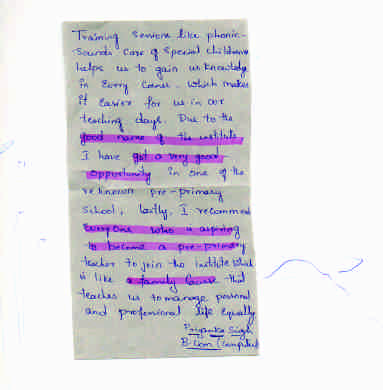 Training sessions like phonic-
sounds care of special children
helps us to gain us knowledge
in every corner. which makes
it easier for us in our
teaching days. Due to the
good name of the institute
I have got a very good
opportunity in one of the
reknown pre-primary
school, lastly, I recommend
everyone who is aspiring
to become a pre-primary
teacher to join the institute which
is like a family cause that
teaches us to manage personal
and professional life equally
Priyanka Singh
B.Com (Computer)